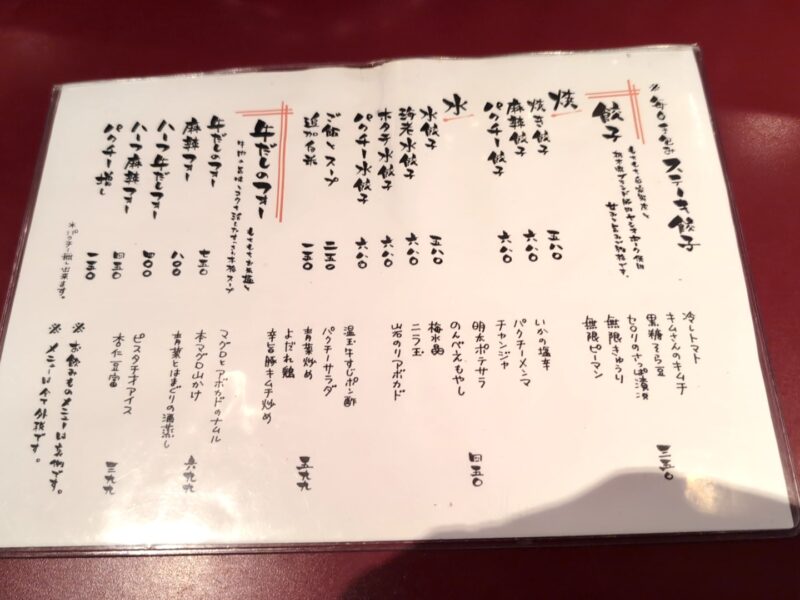 ※毎日手包み ステーキ餃子
餃子
焼
焼き餃子 五八〇
麻辣餃子 六八〇
パクチー餃子 六八〇
水
水餃子 五八〇
海老水餃子 六八〇
ホタテ水餃子 六八〇
パクチー水餃子 六八〇
ご飯とスープ 二五〇
追加白米 一五〇
牛だしのフォー
牛だしのフォー 七五〇
麻辣フォー 八〇〇
ハーフ牛だしフォー 四〇〇
ハーフ麻辣フォー 四五〇
パクチー増し 一五〇
※パクチー抜き出来ます。
冷しトマト
キムさんのキムチ
黒糖そら豆
セロリのさっぱ漬け
無限きゅうり
無限ピーマン
三五〇
いかの塩辛
パクチーメンマ
チャンジャ
明太ポテサラ
のんべえもやし
梅水晶
ニラ玉
岩のりアボカド
四五〇
温玉牛すじポン酢
パクチーサラダ
青菜炒め
よだれ鶏
辛旨豚キムチ炒め
五九九
マグロとアボカドのナムル
本マグロ山かけ
青菜とはまぐりの酒蒸し
六九九
ピスタチオアイス
杏仁豆腐
三九九
※お飲みものメニューは別紙です。
※メニューは全て外税です。